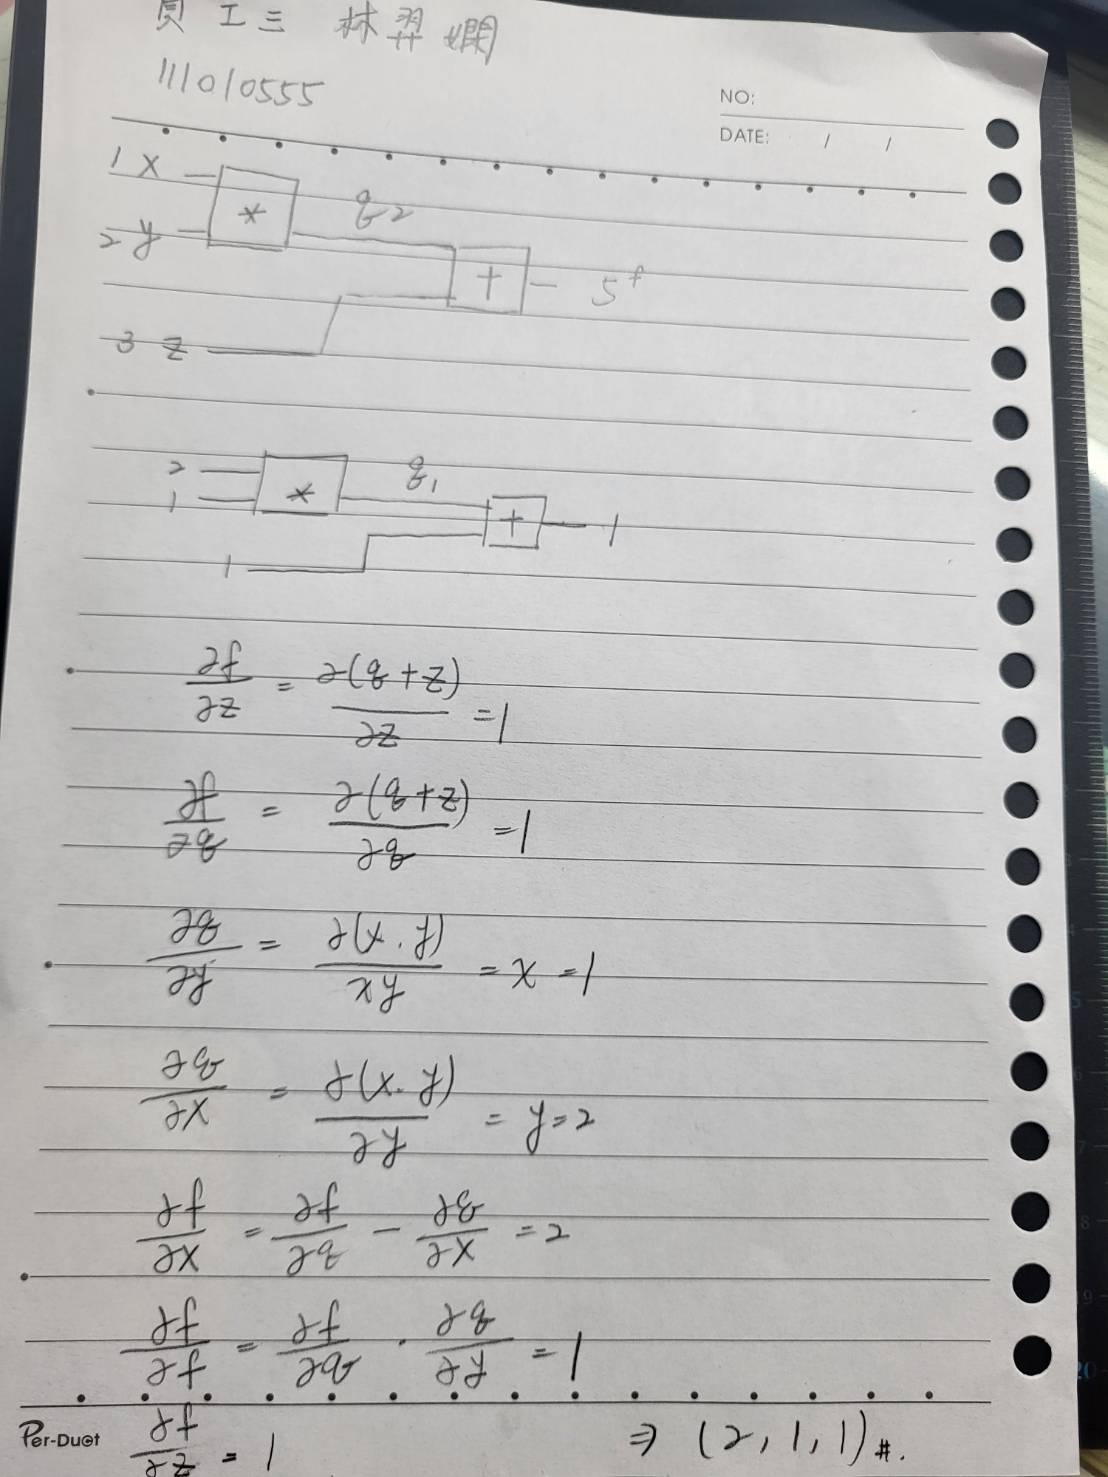 資工三 林羿嫻
111010555
NO:
DATE: / /
1 x
*
q 2
2 y
+
5 f
3 z
2
*
q₁
1
+
1
1
∂f/∂z = ∂(q+z)/∂z = 1
∂f/∂q = ∂(q+z)/∂q = 1
∂q/∂y = ∂(x·y)/xy = x = 1
∂q/∂x = ∂(x·y)/∂y = y = 2
∂f/∂x = ∂f/∂q - ∂q/∂x = 2
∂f/∂f = ∂f/∂q · ∂q/∂y = 1
Per-Duet
∂f/∂z = 1
⇒ (2, 1, 1) #.